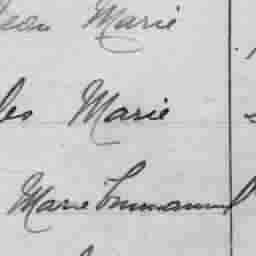 Jean Marie
les Marie
Marie Emmanuel